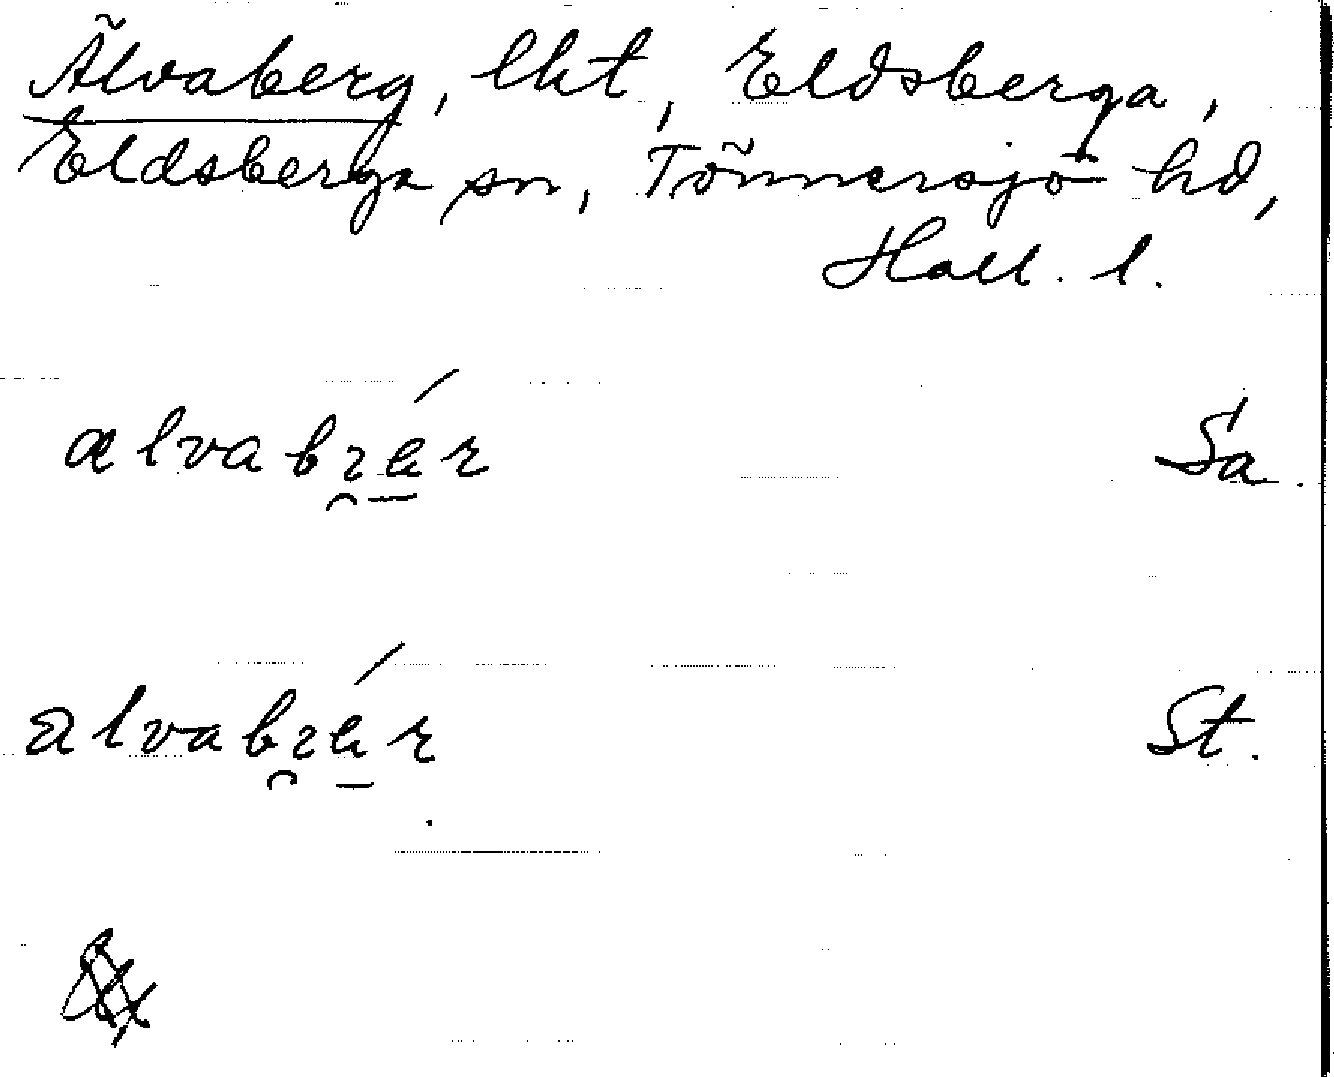 Älvaberg, lht, Eldsberga,
Eldsberga sn, Tönnersjö hd,
Hall. l.
alvabrær Sa.
alvabrær St.